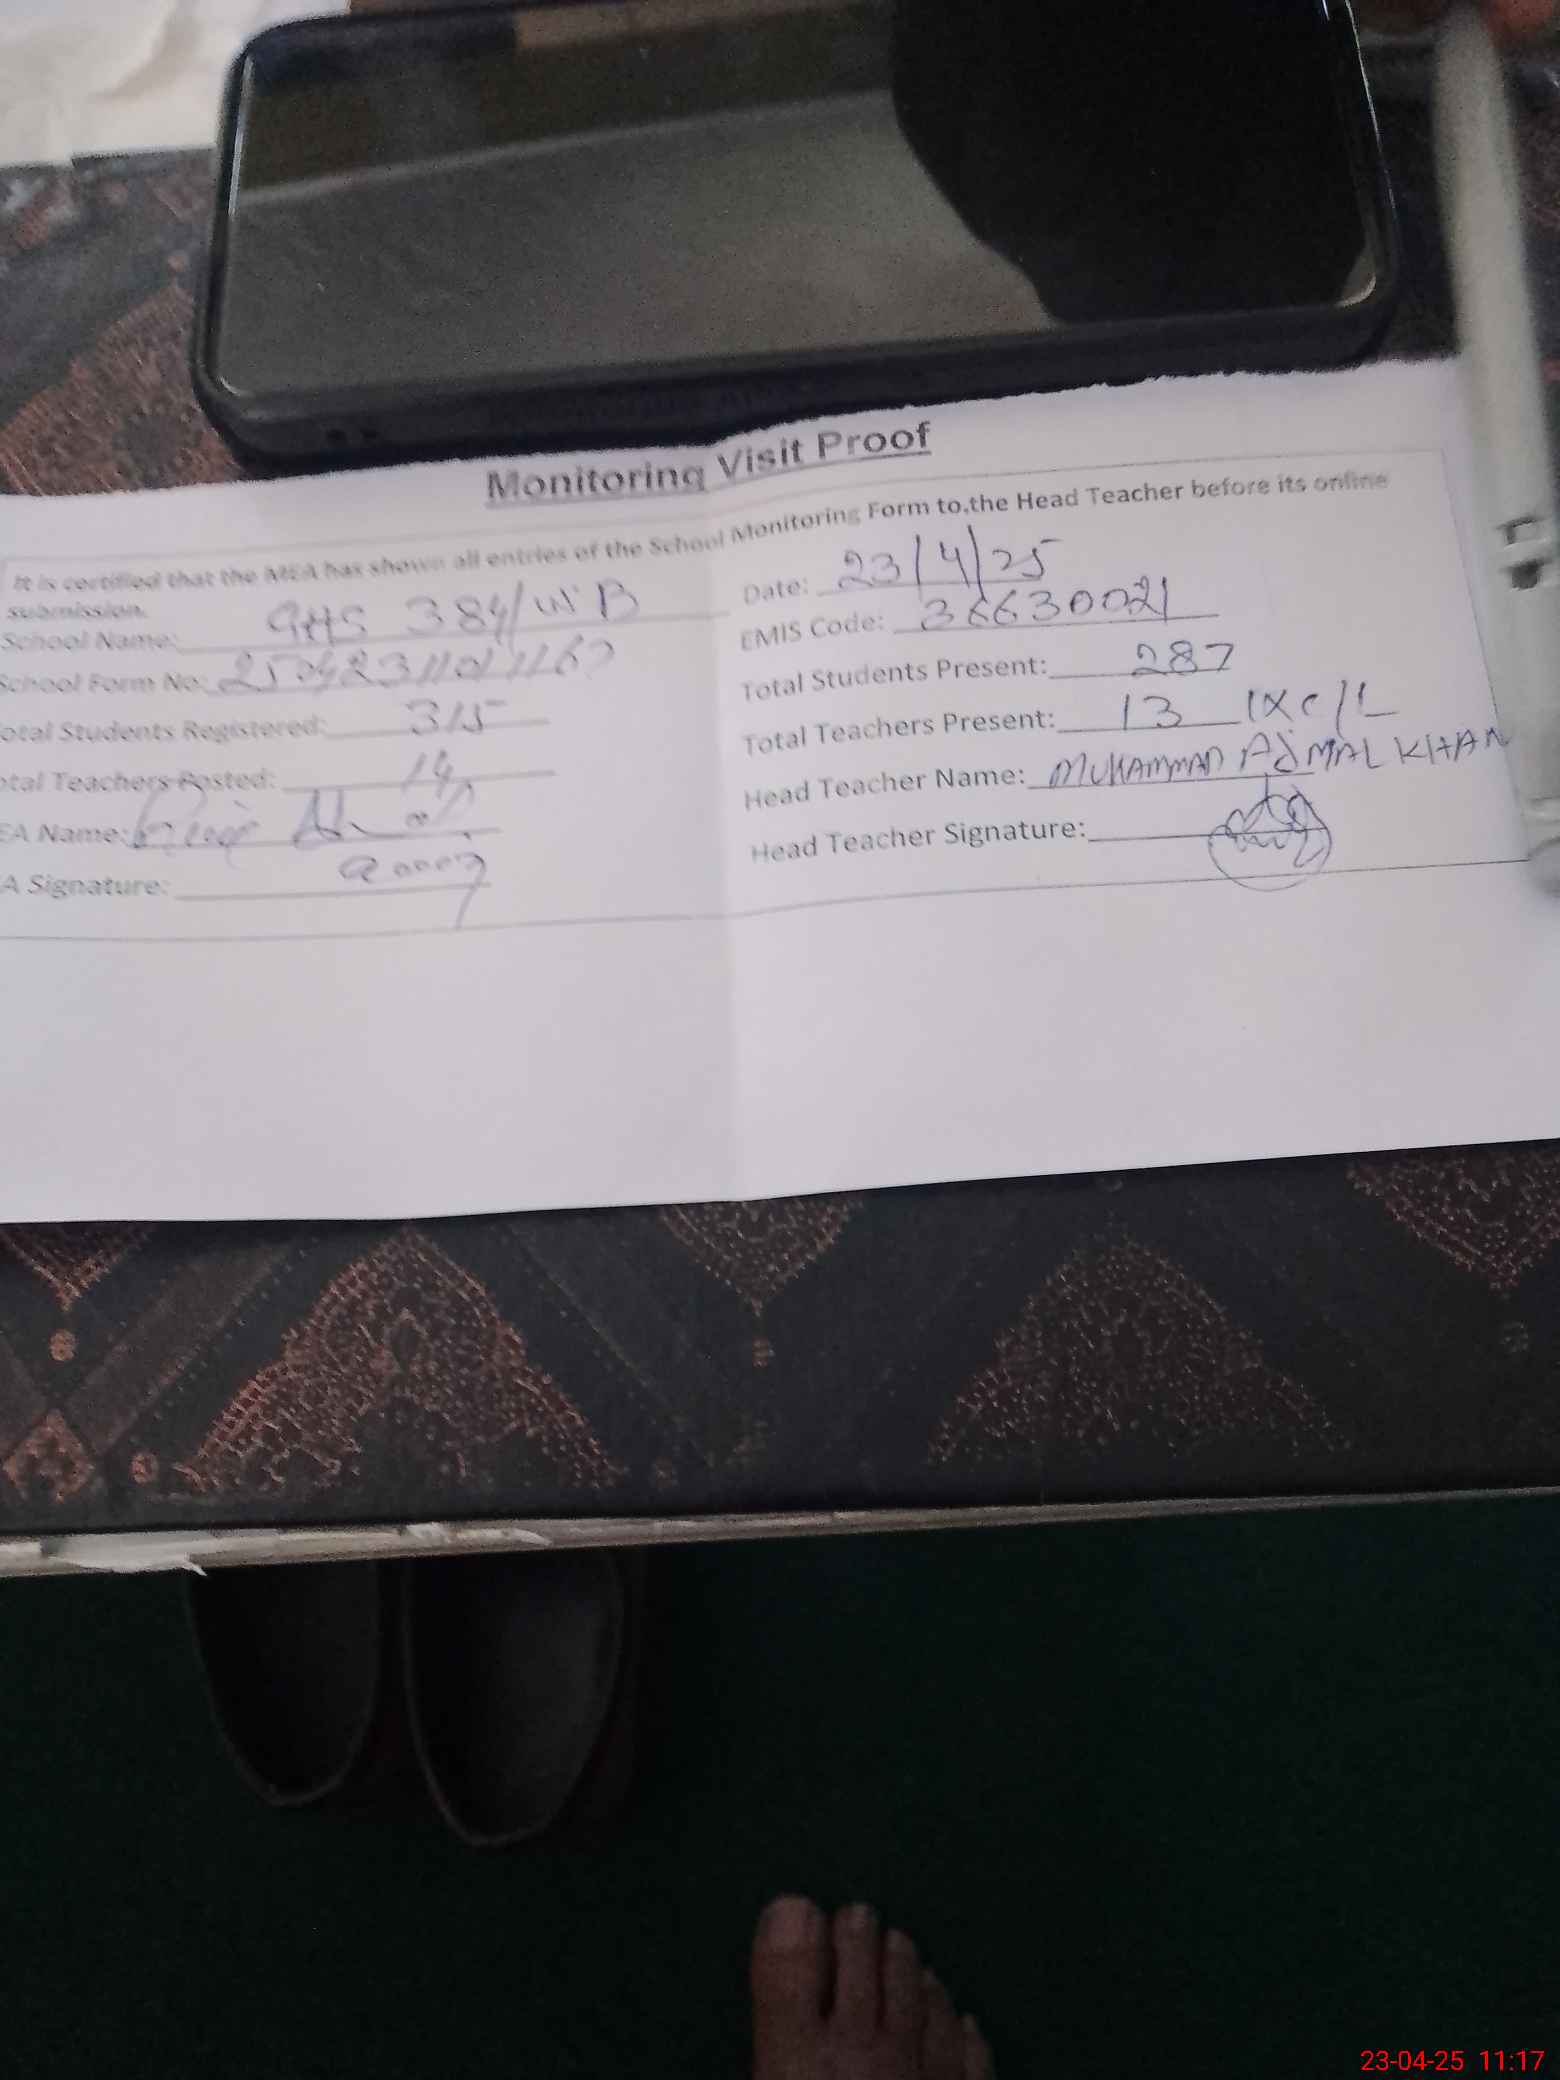 Monitoring Visit Proof
It is certified that the MEA has shown all entries of the School Monitoring Form to,the Head Teacher before its online
submission.
School Name: GHS 384/WB
Date: 23/4/25
School Form No:
EMIS Code: 36630021
Total Students Registered: 315
Total Students Present: 287
Total Teachers Posted: 14
Total Teachers Present: 13 1XC/L
EA Name:
Head Teacher Name: MUHAMMAD AJMAL KHAN
A Signature:
Head Teacher Signature:
23-04-25 11:17